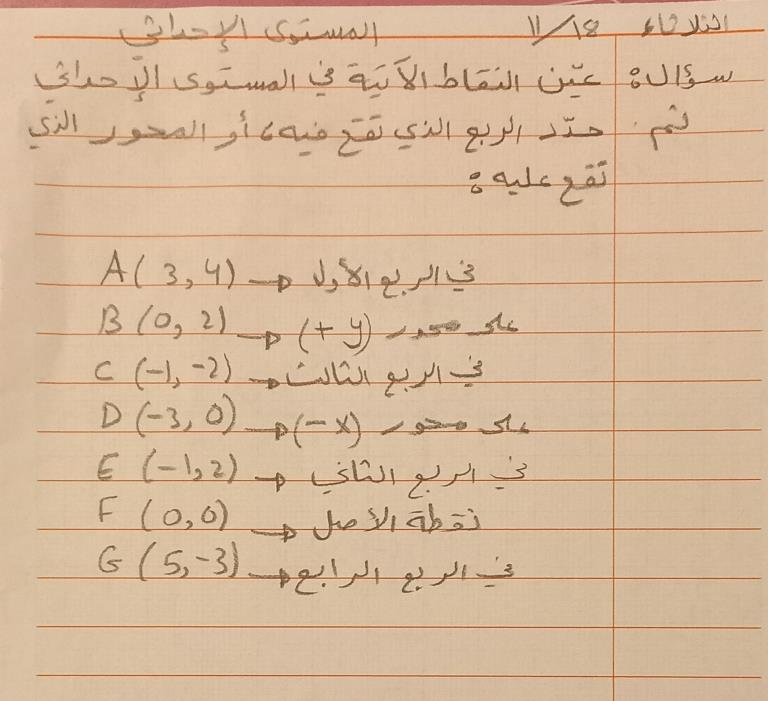 الثلاثاء ١١/١٨ المستوى الإحداثي
سؤال: عيّن النقاط الآتية في المستوى الإحداثي
ثم حدّد الربع الذي تقع فيه، أو المحور الذي
تقع عليه:
A (3,4) → في الربع الأول
B (0, 2) → على محور (+y)
C (-1, -2) → في الربع الثالث
D (-3, 0) → على محور (-x)
E (-1,2) → في الربع الثاني
F (0,0) → نقطة الأصل
G (5,-3) → في الربع الرابع